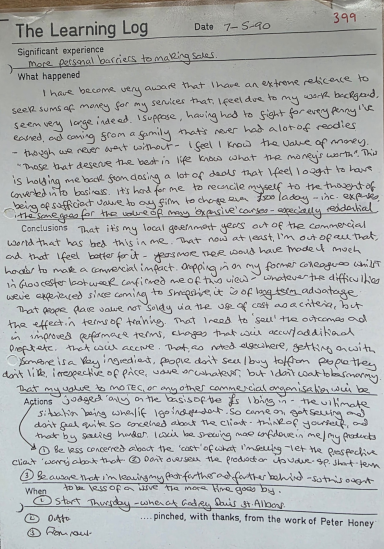 399
The Learning Log Date 7-5-90
Significant experience
More personal barriers to making sales.
What happened
I have become very aware that I have an extreme reticence to
seek sums of money for my services that I feel due to my work background,
seem very large indeed. I suppose, having had to fight for every penny I've
earned, and coming from a family that's never had a lot of readies
- though we never went without - I feel I know the value of money.
"Those that deserve the best in life know what the money's worth". This
is holding me back from closing a lot of deals that I feel I ought to have
converted into business. It's hard for me to reconcile myself to the thought of
being of sufficient value to any firm to charge even a day - inc. expenses
the same goes for the value of many expensive courses - especially residential
Conclusions That it's my local government years out of the commercial
world that has bed this in me. That now at least, I'm out of all that,
and that I feel better for it - years more there would have made it much
harder to make a commercial impact. Dropping in on my former colleagues whilst
in Gloucester last week confirmed me of this view - whatever the difficulties
we've experienced since coming to Shropshire it is of long term advantage
That people place value not solely via the use of cost as a criteria, but
the effect in terms of training. That I need to sell the outcomes and
in improved performance terms, changes that will occur/additional
profit etc. that will accrue. That, as noted elsewhere, getting on with
someone is a key ingredient, people don't sell/buy to/from people they
don't like, irrespective of price, value or whatever, but I don't want to be smarmy
That my value to MOTEC, or any other commercial organisation, will be
Actions judged only on the basis of the £s I bring in - the ultimate
situation being when/if I go independent. So come on get selling and
don't feel quite so concerned about the client - think of yourself, and
that by selling harder I will be showing more confidence in me/my products
① Be less concerned about the 'cost' of what I'm selling - let the prospective
client worry about that ② Don't oversell the product or its value eg. short-term
③ Be aware that I'm leaving my past farther and farther behind - so this ought
to be less of an issue the more time goes by.
When
① Start Thursday - when at Godfrey Davis St. Albans
② Ditto ....pinched, with thanks, from the work of Peter Honey
③ From now.